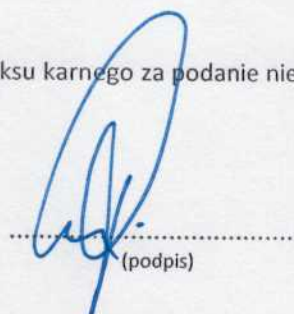 ksu karnego za podanie nie
........................................
(podpis)